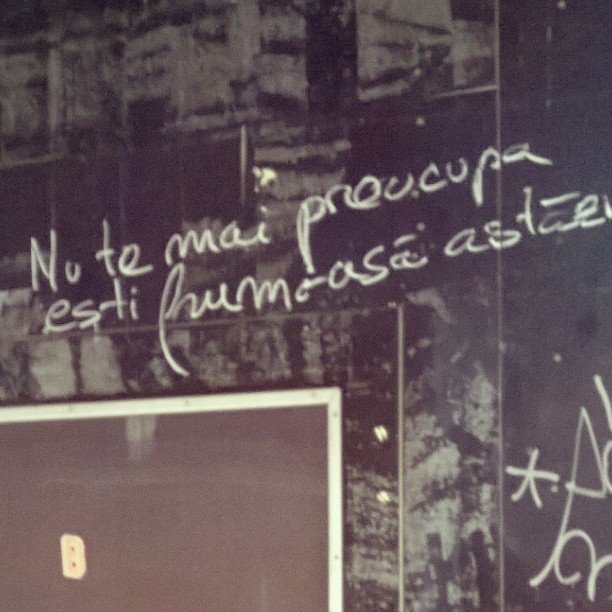 Nu te mai preocupa
esti frumoasă astăe
B